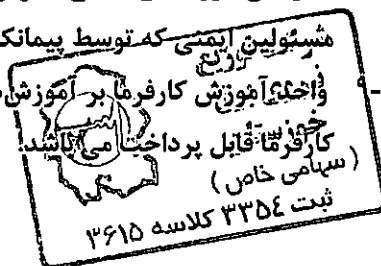 مسئولین ایمنی که توسط پیمانک
۹- واحد آموزش کارفرما بر آموزش
کارفرما قابل پرداخت می باشد.
توزیع
(سهامی خاص)
ثبت ۳۳۵۴ کلاسه ۳۶۱۵